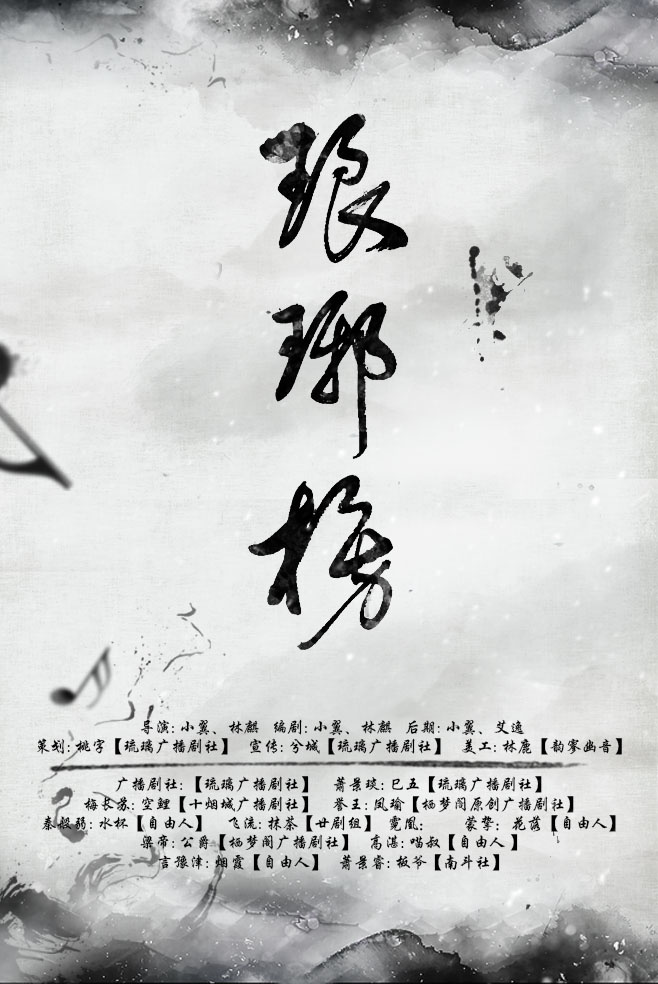 琅琊榜
导演:小翼、林麒 编剧:小翼、林麒 后期:小翼、艾逸
策划:桃字【琉璃广播剧社】 宣传:兮城【琉璃广播剧社】 美工:林鹿【韵雾幽音】
广播剧社:【琉璃广播剧社】 萧景琰:巳五【琉璃广播剧社】
梅长苏:空鲤【十烟城广播剧社】 誉王:凤瑜【栖梦阁原创广播剧社】
秦般弱:水杯【自由人】 飞流:抹茶【廿剧组】 霓凰: 蒙挚:花落【自由人】
梁帝:公爵【栖梦阁广播剧社】 高湛:喵叔【自由人】
言豫津:烟霞【自由人】 萧景睿:板爷【南斗社】